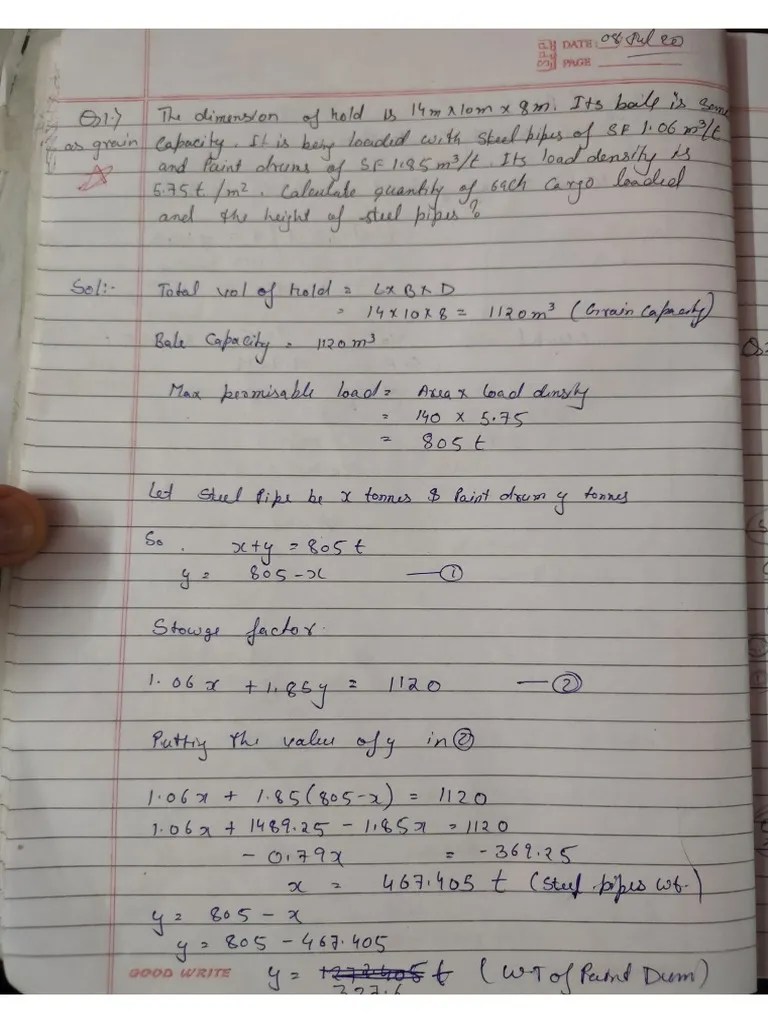 DATE: 08 Jul 20
PAGE
Q1:7 The dimension of hold is 14m x 10m x 8m. Its bale is same
as grain capacity. It is being loaded with steel pipes of SF 1.06 m³/t
and Paint drums of SF 1.85 m³/t. Its load density is
5.75 t/m². Calculate quantity of each cargo loaded
and the height of steel pipes?
Sol:- Total vol of hold = L x B x D
= 14 x 10 x 8 = 1120 m³ (Grain Capacity)
Bale Capacity = 1120 m³
Max permisable load = Area x load density
= 140 x 5.75
= 805 t
Let Steel Pipe be x tonnes & Paint drum y tonnes
So, x+y = 805 t
y = 805-x —①
Stowge factor.
1.06x + 1.85y = 1120 —②
Putting the value of y in ②
1.06x + 1.85(805-x) = 1120
1.06x + 1489.25 - 1.85x = 1120
- 0.79x = -369.25
x = 467.405 t (Steel pipes wt.)
y = 805 - x
y = 805 - 467.405
GOOD WRITE y = t (WT of Paint Dum)